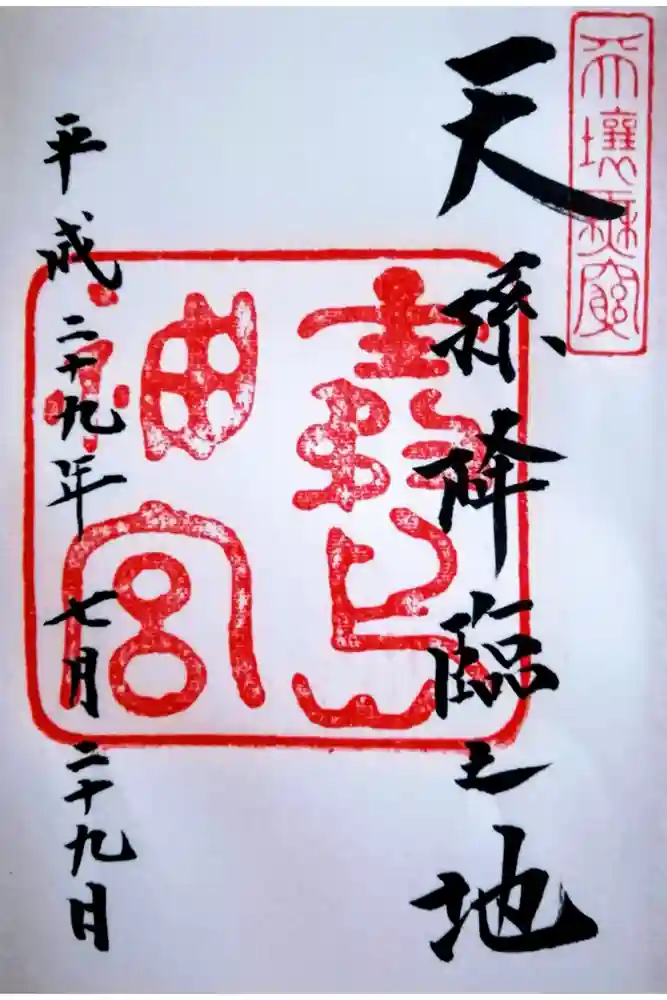 天壤無窮
天孫降臨之地
霧島
神宮
平成二十九年七月二十九日